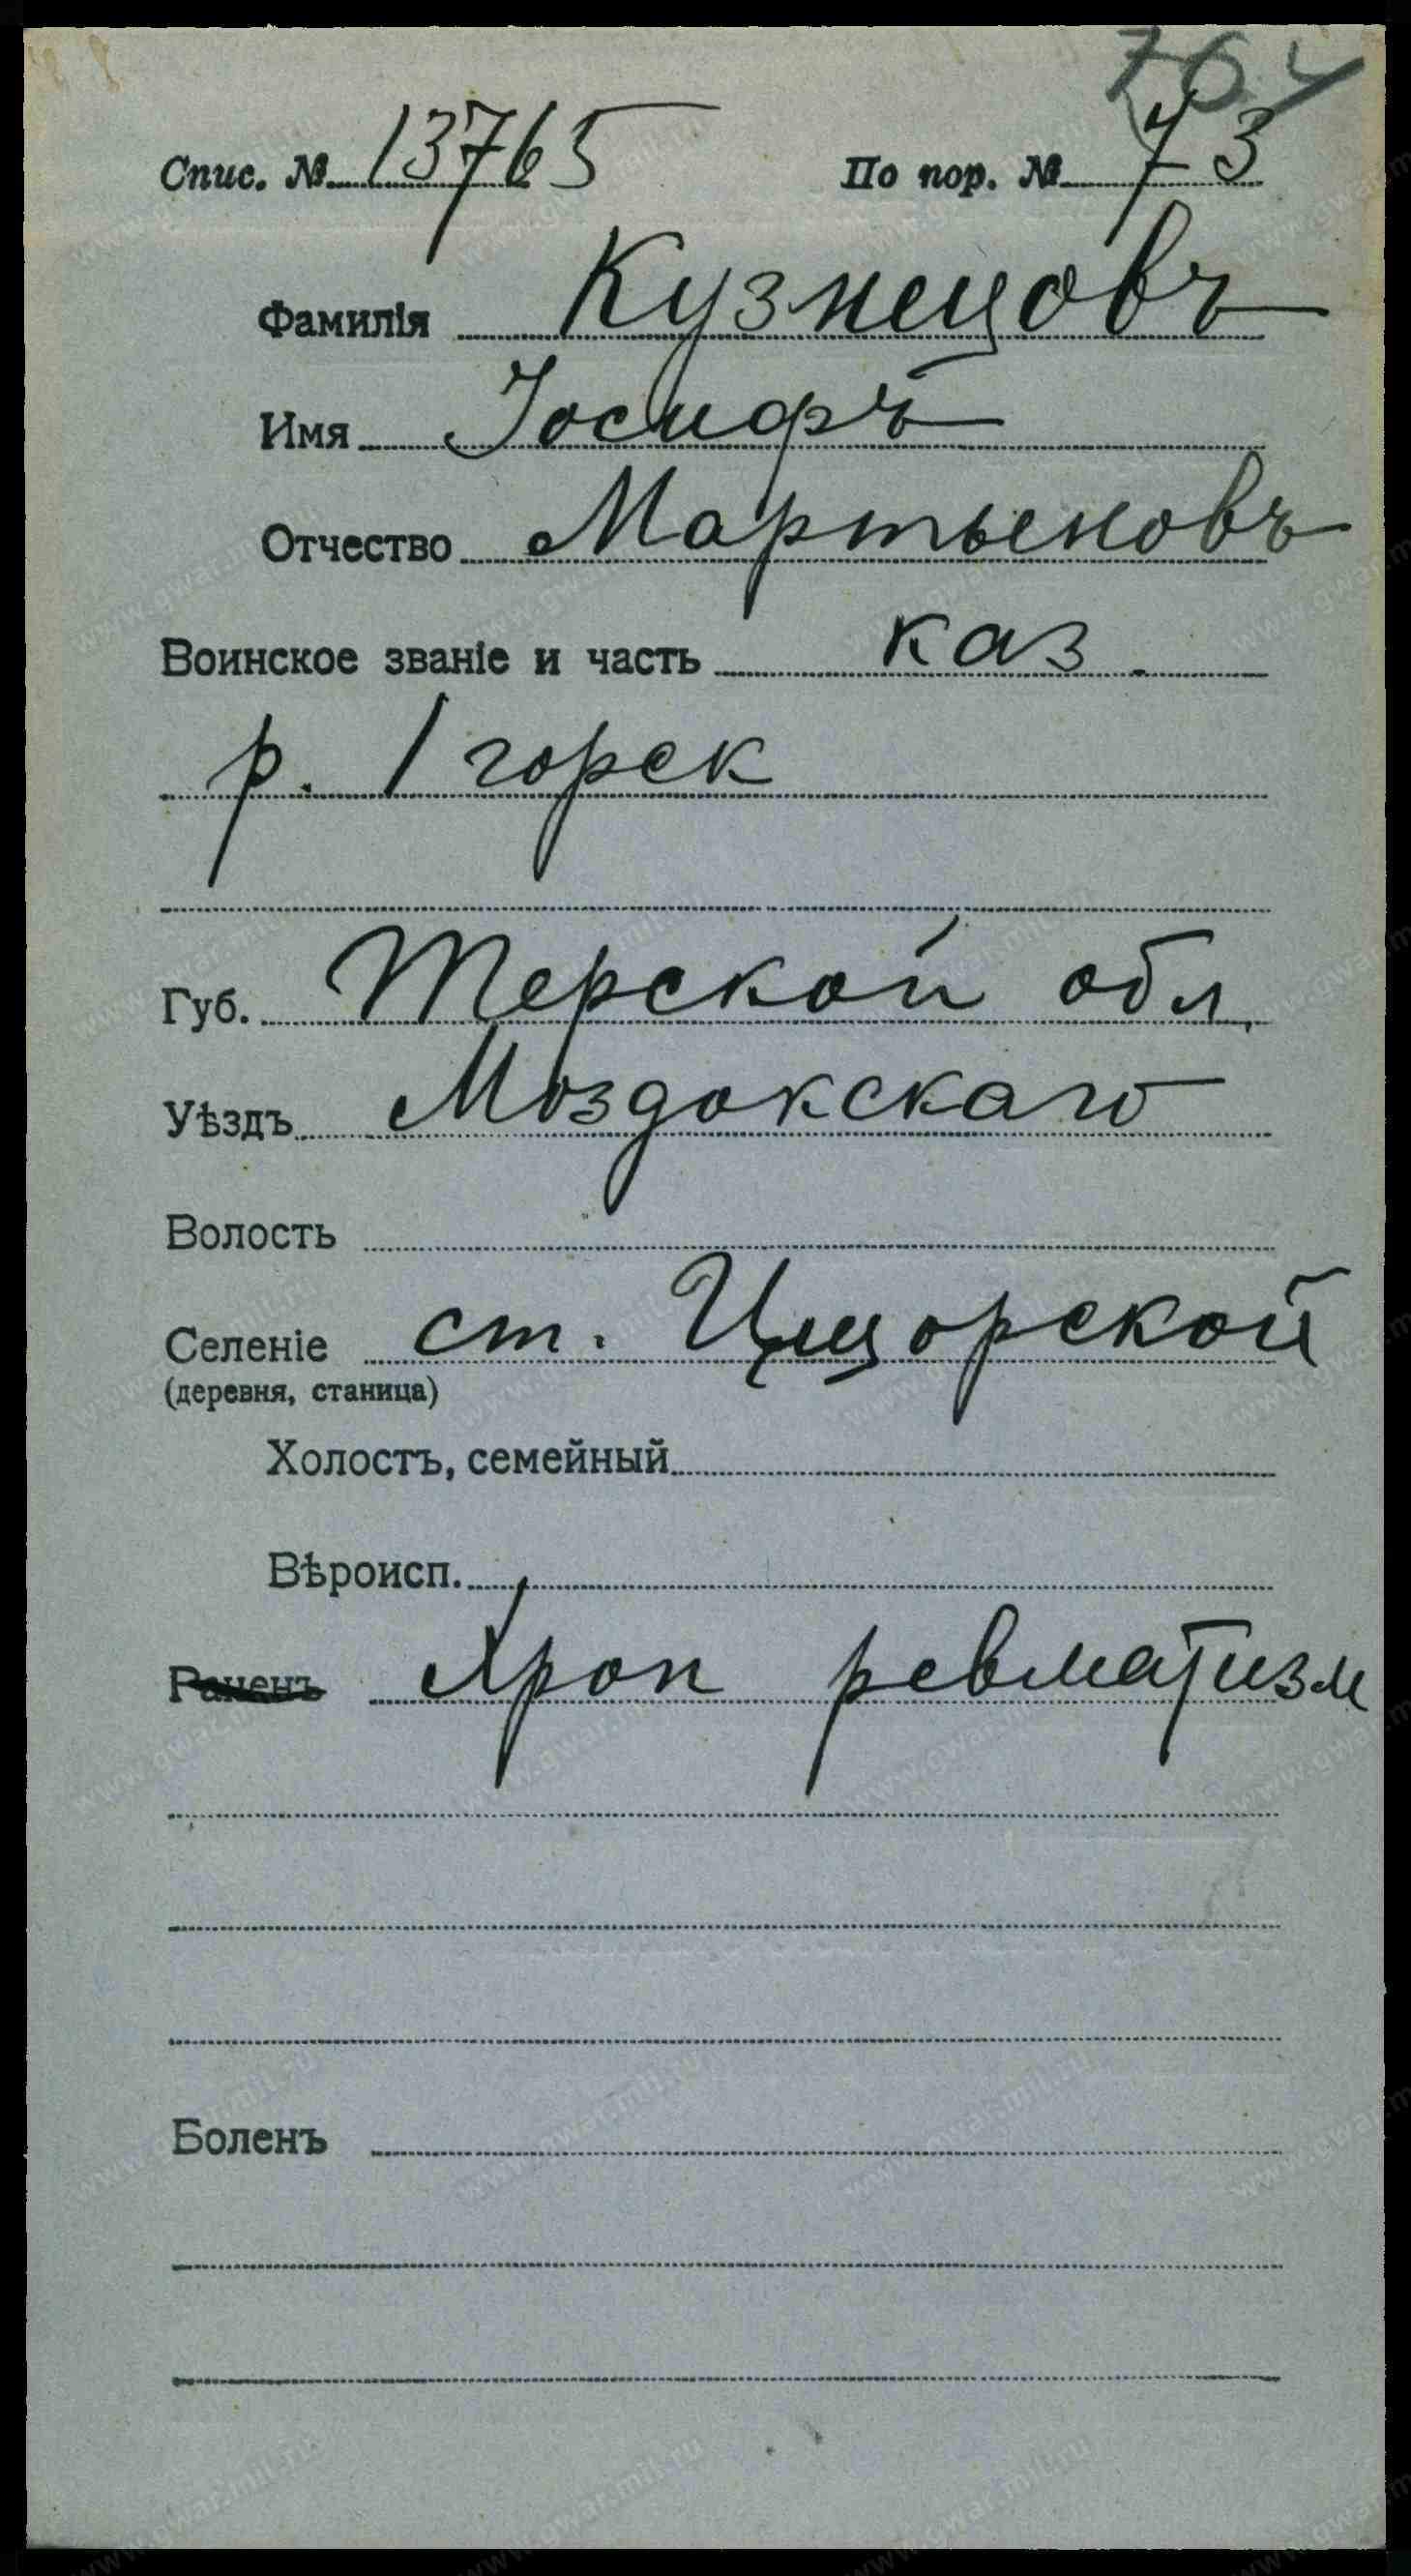 764
Спис. № 13765 По пор. № 73
Фамилія Кузнецовъ
Имя Іосифъ
Отчество Мартыновъ
Воинское званіе и часть каз.
р. 1 горск
Губ. Терской обл.
Уѣздъ Моздокскаго
Волость
Селеніе ст. Ищорской
(деревня, станица)
Холостъ, семейный
Вѣроисп.
Раненъ Хрон ревматизм
Боленъ
www.gwar.mil.ru